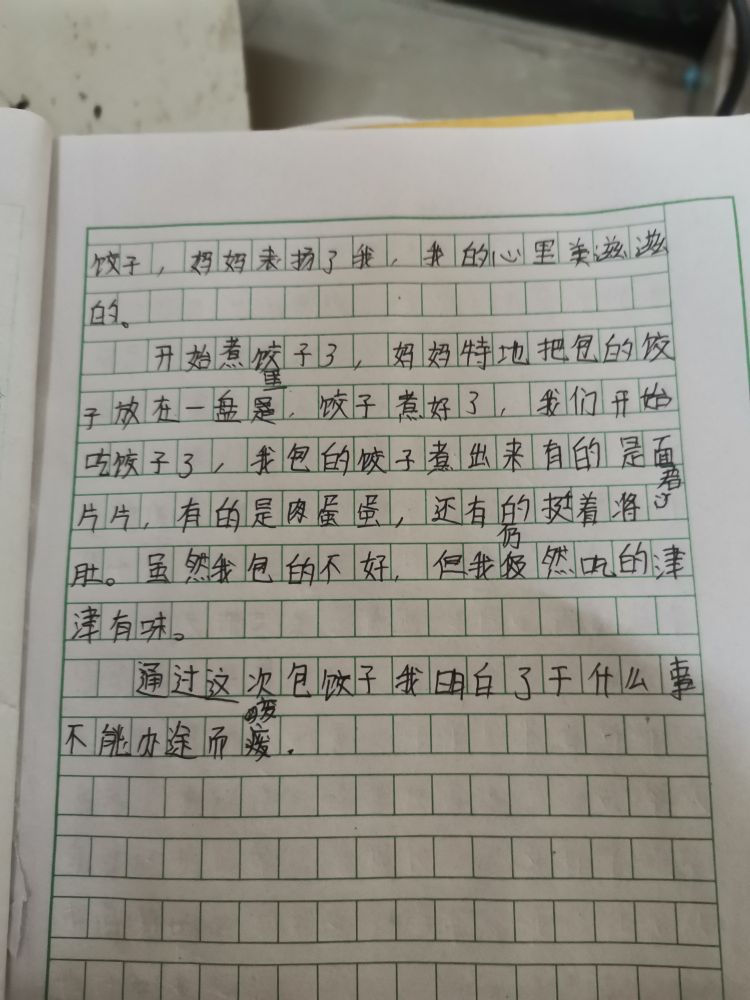 饺子，妈妈表扬了我，我的心里美滋滋
的。
开始煮饺子了，妈妈特地把包的饺
子放在一盘里，饺子煮好了，我们开始
吃饺子了，我包的饺子煮出来有的是面
片片，有的是肉蛋蛋，还有的挺着将军
肚。虽然我包的不好，但我仍然吃的津
津有味。
通过这次包饺子我明白了干什么事
不能办途而废.